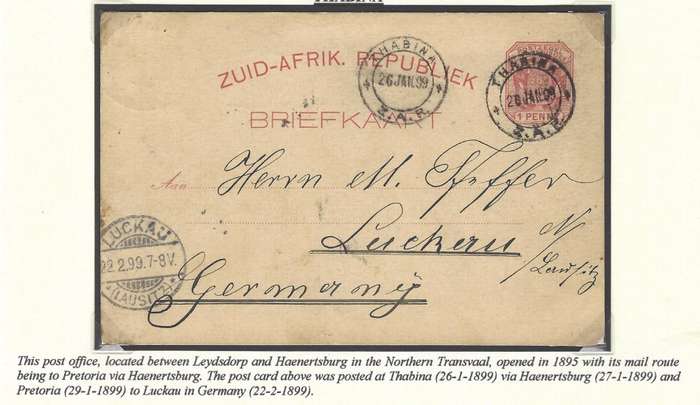 THABINA
ZUID-AFRIK. REPUBLIEK
THABINA
26 JAN.99
Z.A.R.
THABINA
26 JAN.99
Z.A.R.
1 PENNY
BRIEFKAART
Aan
Herrn M. Pfeffer
Luckau N/
Lausitz
Germany
LUCKAU
22.2.99.7-8V.
(LAUSITZ)
This post office, located between Leydsdorp and Haenertsburg in the Northern Transvaal, opened in 1895 with its mail route
being to Pretoria via Haenertsburg. The post card above was posted at Thabina (26-1-1899) via Haenertsburg (27-1-1899) and
Pretoria (29-1-1899) to Luckau in Germany (22-2-1899).